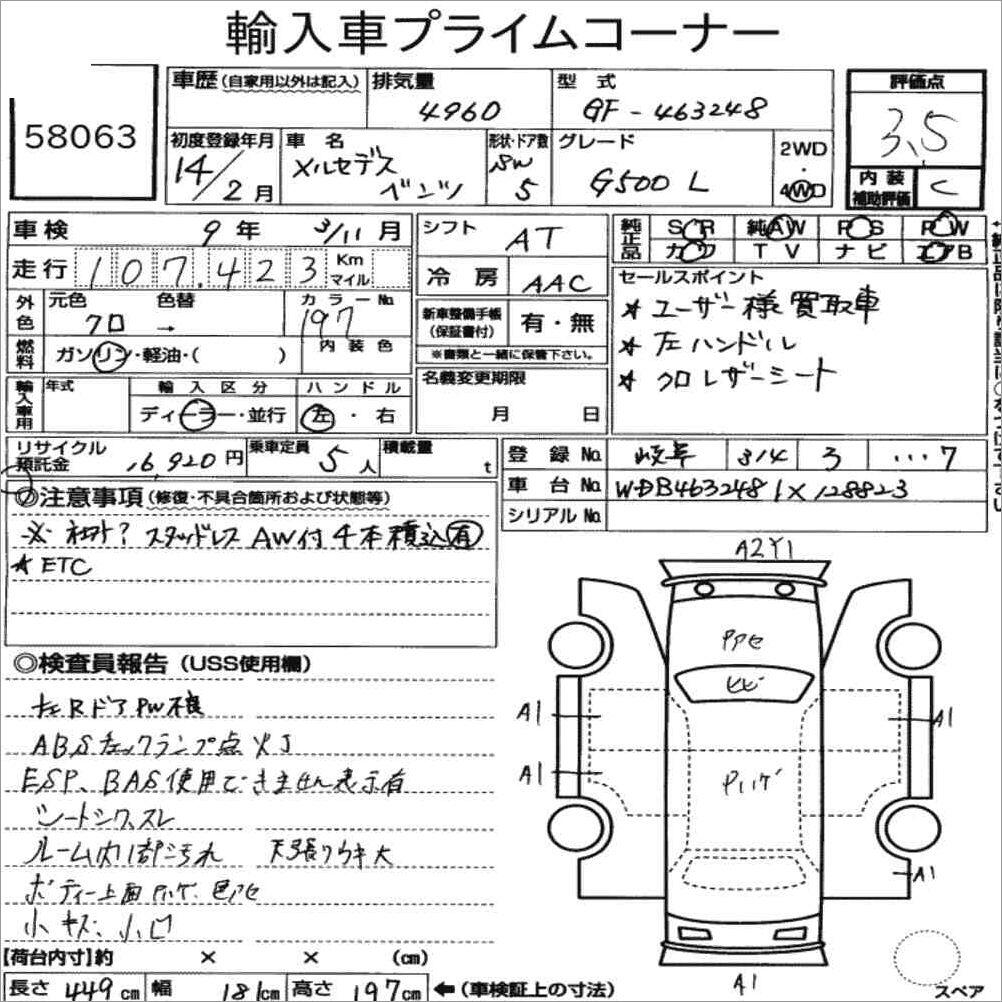 輸入車プライムコーナー
58063
車歴 (自家用以外は記入)
排気量
4960
型式
GF-463248
評価点
3.5
初度登録年月
14/2月
車名
メルセデス
ベンツ
形状・ドア数
SW
5
グレード
G500 L
2WD
・
4WD
内装
補助評価
C
車検
9年 3/11月
シフト
AT
純正品
SR 純AW PS PW
カワ TV ナビ エアB
走行
107,423
Km
マイル
冷房
AAC
セールスポイント
★ユーザー様買取車
★左ハンドル
★クロレザーシート
外色
元色
クロ
色替
→
カラーNo
197
新車整備手帳
(保証書付)
有・無
※書類と一緒に保管下さい。
燃料
ガソリン・軽油・( )
内装色
名義変更期限
月 日
輸入車用
年式
輸入区分
ディーラー・並行
ハンドル
左・右
リサイクル
預託金
16,920円
乗車定員
5人
積載量
t
登録No
岐阜 314 3 …7
車台No
WDB4632481X128823
シリアルNo
◎注意事項 (修復・不具合箇所および状態等)
スタッドレス AW付 4本積込有
★ETC
A2Y1
◎検査員報告 (USS使用欄)
左Rドア PW不良
ABSチェックランプ点灯
ESP、BAS使用できません表示有
シートシワ、スレ
ルーム内1部汚れ 天張りウキ大
ボディー上面 Pハゲ、色アセ
小キズ、小凹
Pアセ
ヒビ
A1
A1
A1
Pハゲ
A1
A1
【荷台内寸】約 × × (cm)
長さ 449cm
幅 181cm
高さ 197cm
←(車検証上の寸法)
スペア